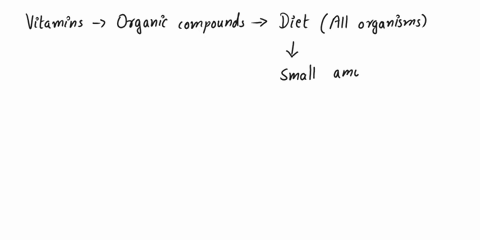 Vitamins → Organic compounds → Diet (All organisms)
↓
Small amo